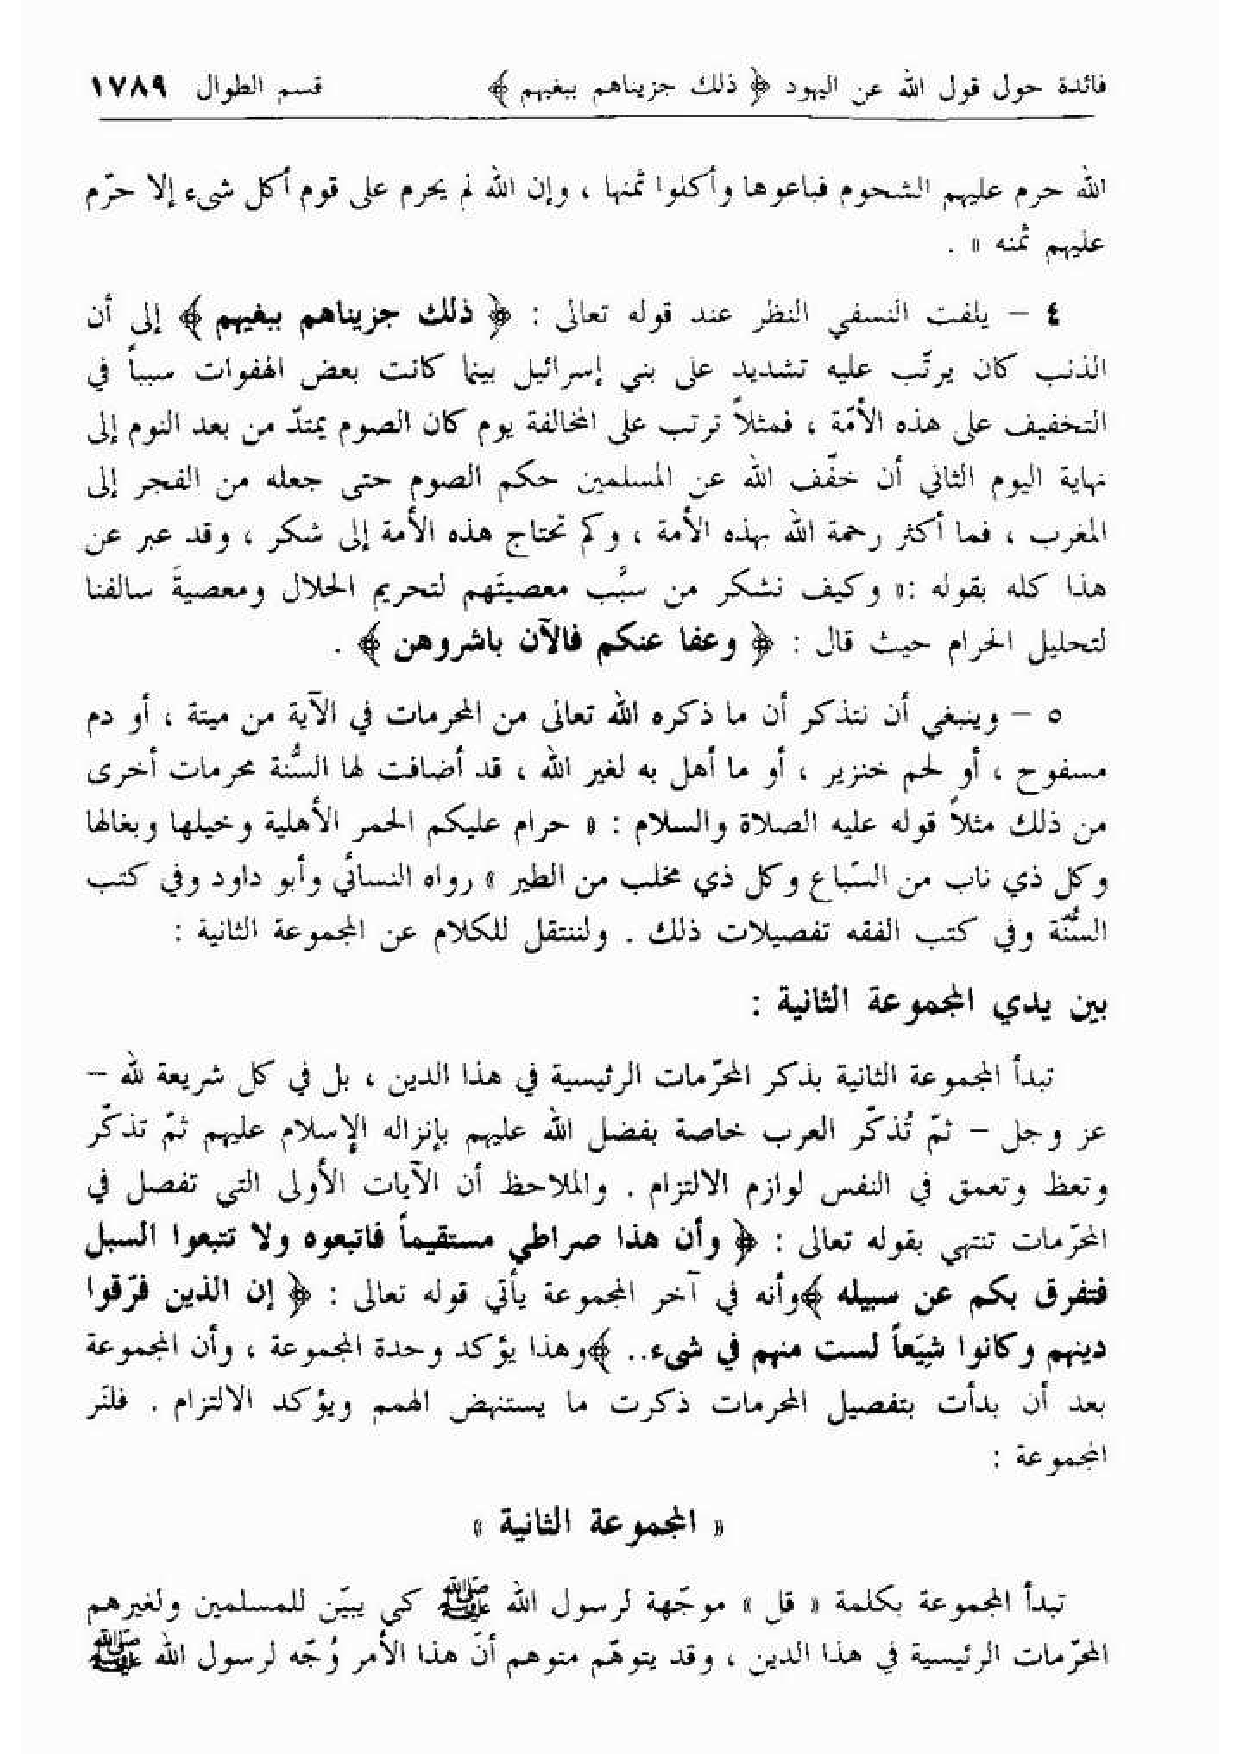 فائدة حول قول الله عن اليهود ﴿ ذلك جزيناهم ببغيهم ﴾ قسم الطوال ١٧٨٩
الله حرم عليهم الشحوم فباعوها وأكلوا ثمنها ، وإن الله لم يحرم على قوم أكل شيء إلا حرّم
عليهم ثمنه » .
٤ – يلفت النسفي النظر عند قوله تعالى : ﴿ ذلك جزيناهم ببغيهم ﴾ إلى أن
الذنب كان يرتّب عليه تشديد على بني إسرائيل بينما كانت بعض الهفوات سبباً في
التخفيف على هذه الأمّة ، فمثلاً ترتب على المخالفة يوم كان الصوم يمتدّ من بعد النوم إلى
نهاية اليوم الثاني أن خفّف الله عن المسلمين حكم الصوم حتى جعله من الفجر إلى
المغرب ، فما أكثر رحمة الله بهذه الأمة ، وكم تحتاج هذه الأمة إلى شكر ، وقد عبر عن
هذا كله بقوله :« وكيف نشكر من سبَّب معصيتَهم لتحريم الحلال ومعصيةَ سالفنا
لتحليل الحرام حيث قال : ﴿ وعفا عنكم فالآن باشروهن ﴾ .
٥ – وينبغي أن نتذكر أن ما ذكره الله تعالى من المحرمات في الآية من ميتة ، أو دم
مسفوح ، أو لحم خنزير ، أو ما أهل به لغير الله ، قد أضافت لها السُّنة محرمات أخرى
من ذلك مثلاً قوله عليه الصلاة والسلام : « حرام عليكم الحمر الأهلية وخيلها وبغالها
وكل ذي ناب من السّباع وكل ذي مخلب من الطير » رواه النسائي وأبو داود وفي كتب
السُّنّة وفي كتب الفقه تفصيلات ذلك . ولننتقل للكلام عن المجموعة الثانية :
بين يدي المجموعة الثانية :
تبدأ المجموعة الثانية بذكر المحرّمات الرئيسية في هذا الدين ، بل في كل شريعة لله –
عز وجل – ثمّ تُذكّر العرب خاصة بفضل الله عليهم بإنزاله الإسلام عليهم ثمّ تذكّر
وتعظ وتعمق في النفس لوازم الالتزام . والملاحظ أن الآيات الأولى التي تفصل في
المحرّمات تنتهي بقوله تعالى : ﴿ وأن هذا صراطي مستقيماً فاتبعوه ولا تتبعوا السبل
فتفرق بكم عن سبيله ﴾وأنه في آخر المجموعة يأتي قوله تعالى : ﴿ إن الذين فرّقوا
دينهم وكانوا شِيَعاً لست منهم في شيء.. ﴾وهذا يؤكد وحدة المجموعة ، وأن المجموعة
بعد أن بدأت بتفصيل المحرمات ذكرت ما يستنهض الهمم ويؤكد الالتزام . فلنَر
المجموعة :
« المجموعة الثانية »
تبدأ المجموعة بكلمة « قل » موجّهة لرسول الله ﷺ كي يبيّن للمسلمين ولغيرهم
المحرّمات الرئيسية في هذا الدين ، وقد يتوهّم متوهم أنّ هذا الأمر وُجّه لرسول الله ﷺ